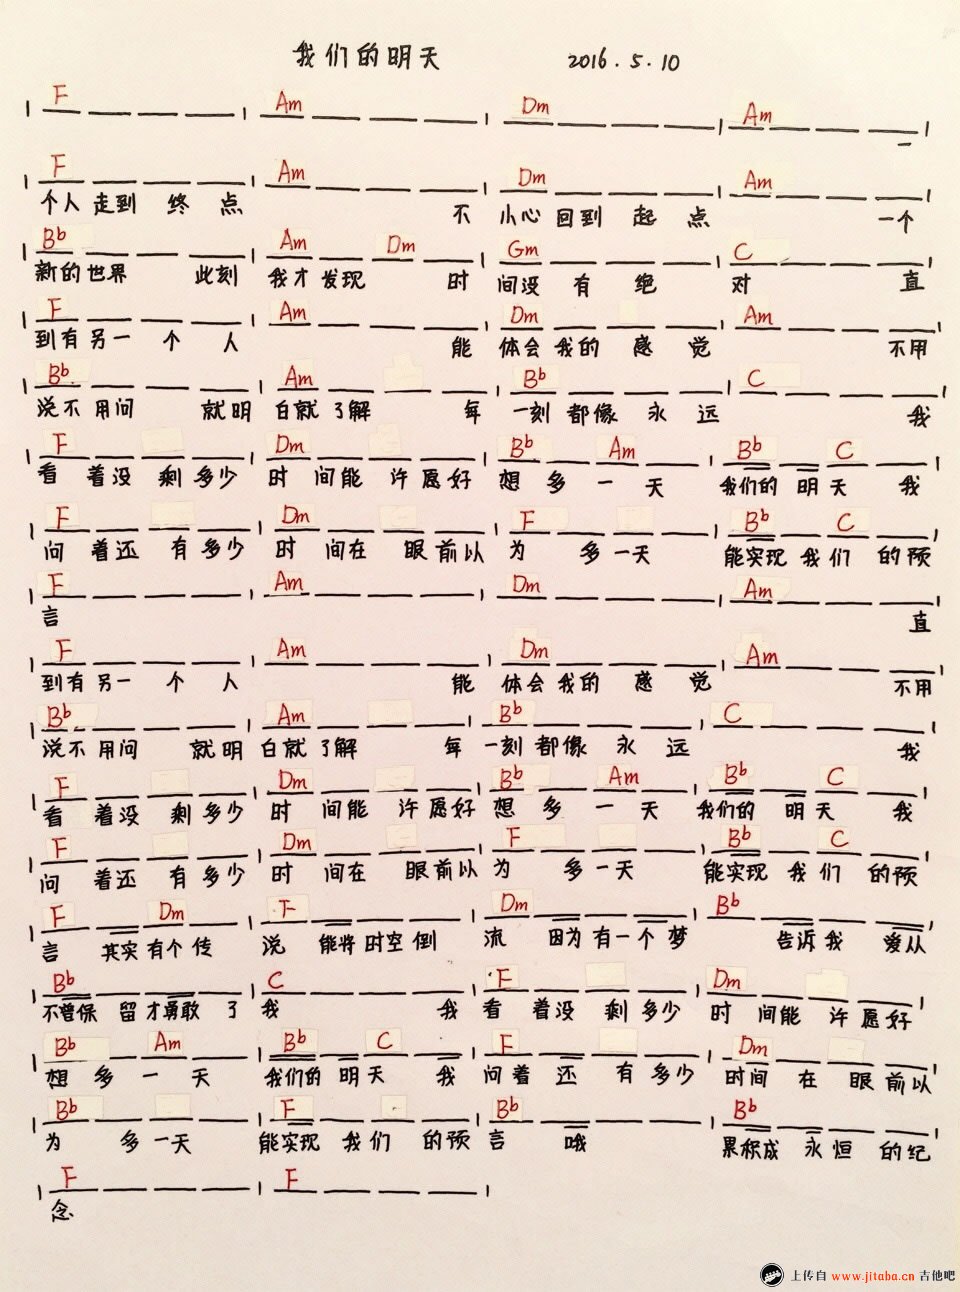 我们的明天 2016.5.10
F Am Dm Am
一
F Am Dm Am
个人走到 终 点 不 小心回到 起 点 一个
Bb Am Dm Gm C
新的世界 此刻 我才发现 时 间没 有 绝 对 直
F Am Dm Am
到有另一 个 人 能 体会我的 感 觉 不用
Bb Am Bb C
说不用问 就明 白就了解 每 一刻都像 永 远 我
F Dm Bb Am Bb C
看 着没 剩多少 时 间能 许愿好 想 多 一 天 我们的 明天 我
F Dm F Bb C
问 着还 有多少 时 间在 眼前以 为 多一天 能实现 我们 的预
F Am Dm Am
言 直
F Am Dm Am
到有另一 个 人 能 体会我的 感 觉 不用
Bb Am Bb C
说不用问 就明 白就了解 每 一刻都像 永 远 我
F Dm Bb Am Bb C
看 着没 剩多少 时 间能 许愿好 想 多 一 天 我们的 明天 我
F Dm F Bb C
问 着还 有多少 时 间在 眼前以 为 多一天 能实现 我们 的预
F Dm F Dm Bb
言 其实有个传 说 能将时空倒 流 因为有一个梦 告诉我 爱从
Bb C F Dm
不曾保 留才勇敢 了 我 我 看 着没 剩多少 时 间能 许愿好
Bb Am Bb C F Dm
想 多 一 天 我们的 明天 我 问着 还 有多少 时间 在 眼前以
Bb F Bb Bb
为 多一天 能实现 我们 的预 言 哦 累积成 永恒 的纪
F F
念
上传自 www.jitaba.cn 吉他吧